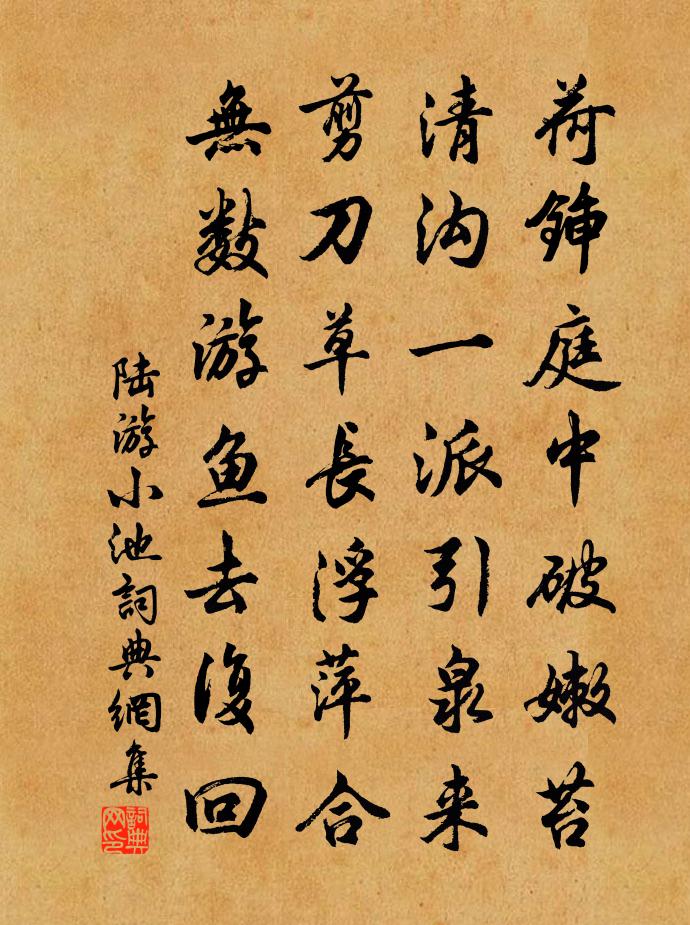 荷鍤庭中破嫩苔
清沟一派引泉来
剪刀草長浮萍合
無数游鱼去復回
陆游小池詞典網集
詞典网印